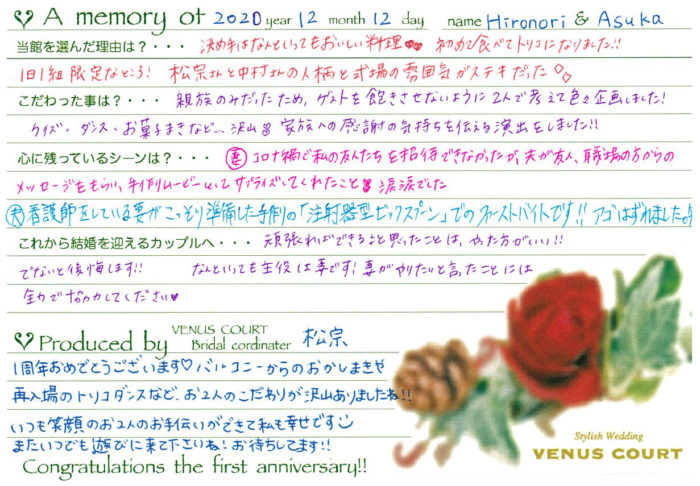 A memory of 2020 year 12 month 12 day name Hironori & Asuka
当館を選んだ理由は？・・・ 決め手はなんといってもおいしい料理♥♥ 初めて食べてトリコになりました!!
1日1組限定なところ! 松宗さんと中村さんの人柄と式場の雰囲気がステキだった◇◇
こだわった事は？・・・ 親族のみだったため、ゲストを飽きさせないように2人で考えて色々企画しました!
クイズ・ダンス・お菓子まきなど…沢山 家族への感謝の気持ちを伝える演出をしました!!
心に残っているシーンは？・・・ 妻 コロナ禍で私の友人たちを招待できなかったが、夫が友人、職場の方からの
メッセージをもらい、手作りムービーとしてサプライズしてくれたこと 涙涙でした
夫 看護師をしている妻がこっそり準備した手作りの「注射器型ビックスプーン」でのファーストバイトです!! アゴはずれましたよ
これから結婚を迎えるカップルへ・・・ 頑張ればできること思ったことは、やった方がいい!!
でないと後悔します!! なんといっても主役は妻です! 妻がやりたいと言ったことには
全力で協力してください♥
Produced by VENUS COURT Bridal cordinater 松宗
1周年おめでとうございます♡バルコニーからのおかしまきや
再入場のトリコダンスなど、お2人のこだわりが沢山ありましたね!!
いつも笑顔のお2人のお手伝いができて私も幸せです
またいつでも遊びに来て下さいね! お待ちしてます!!
Congratulations the first anniversary!!
Stylish Wedding
VENUS COURT